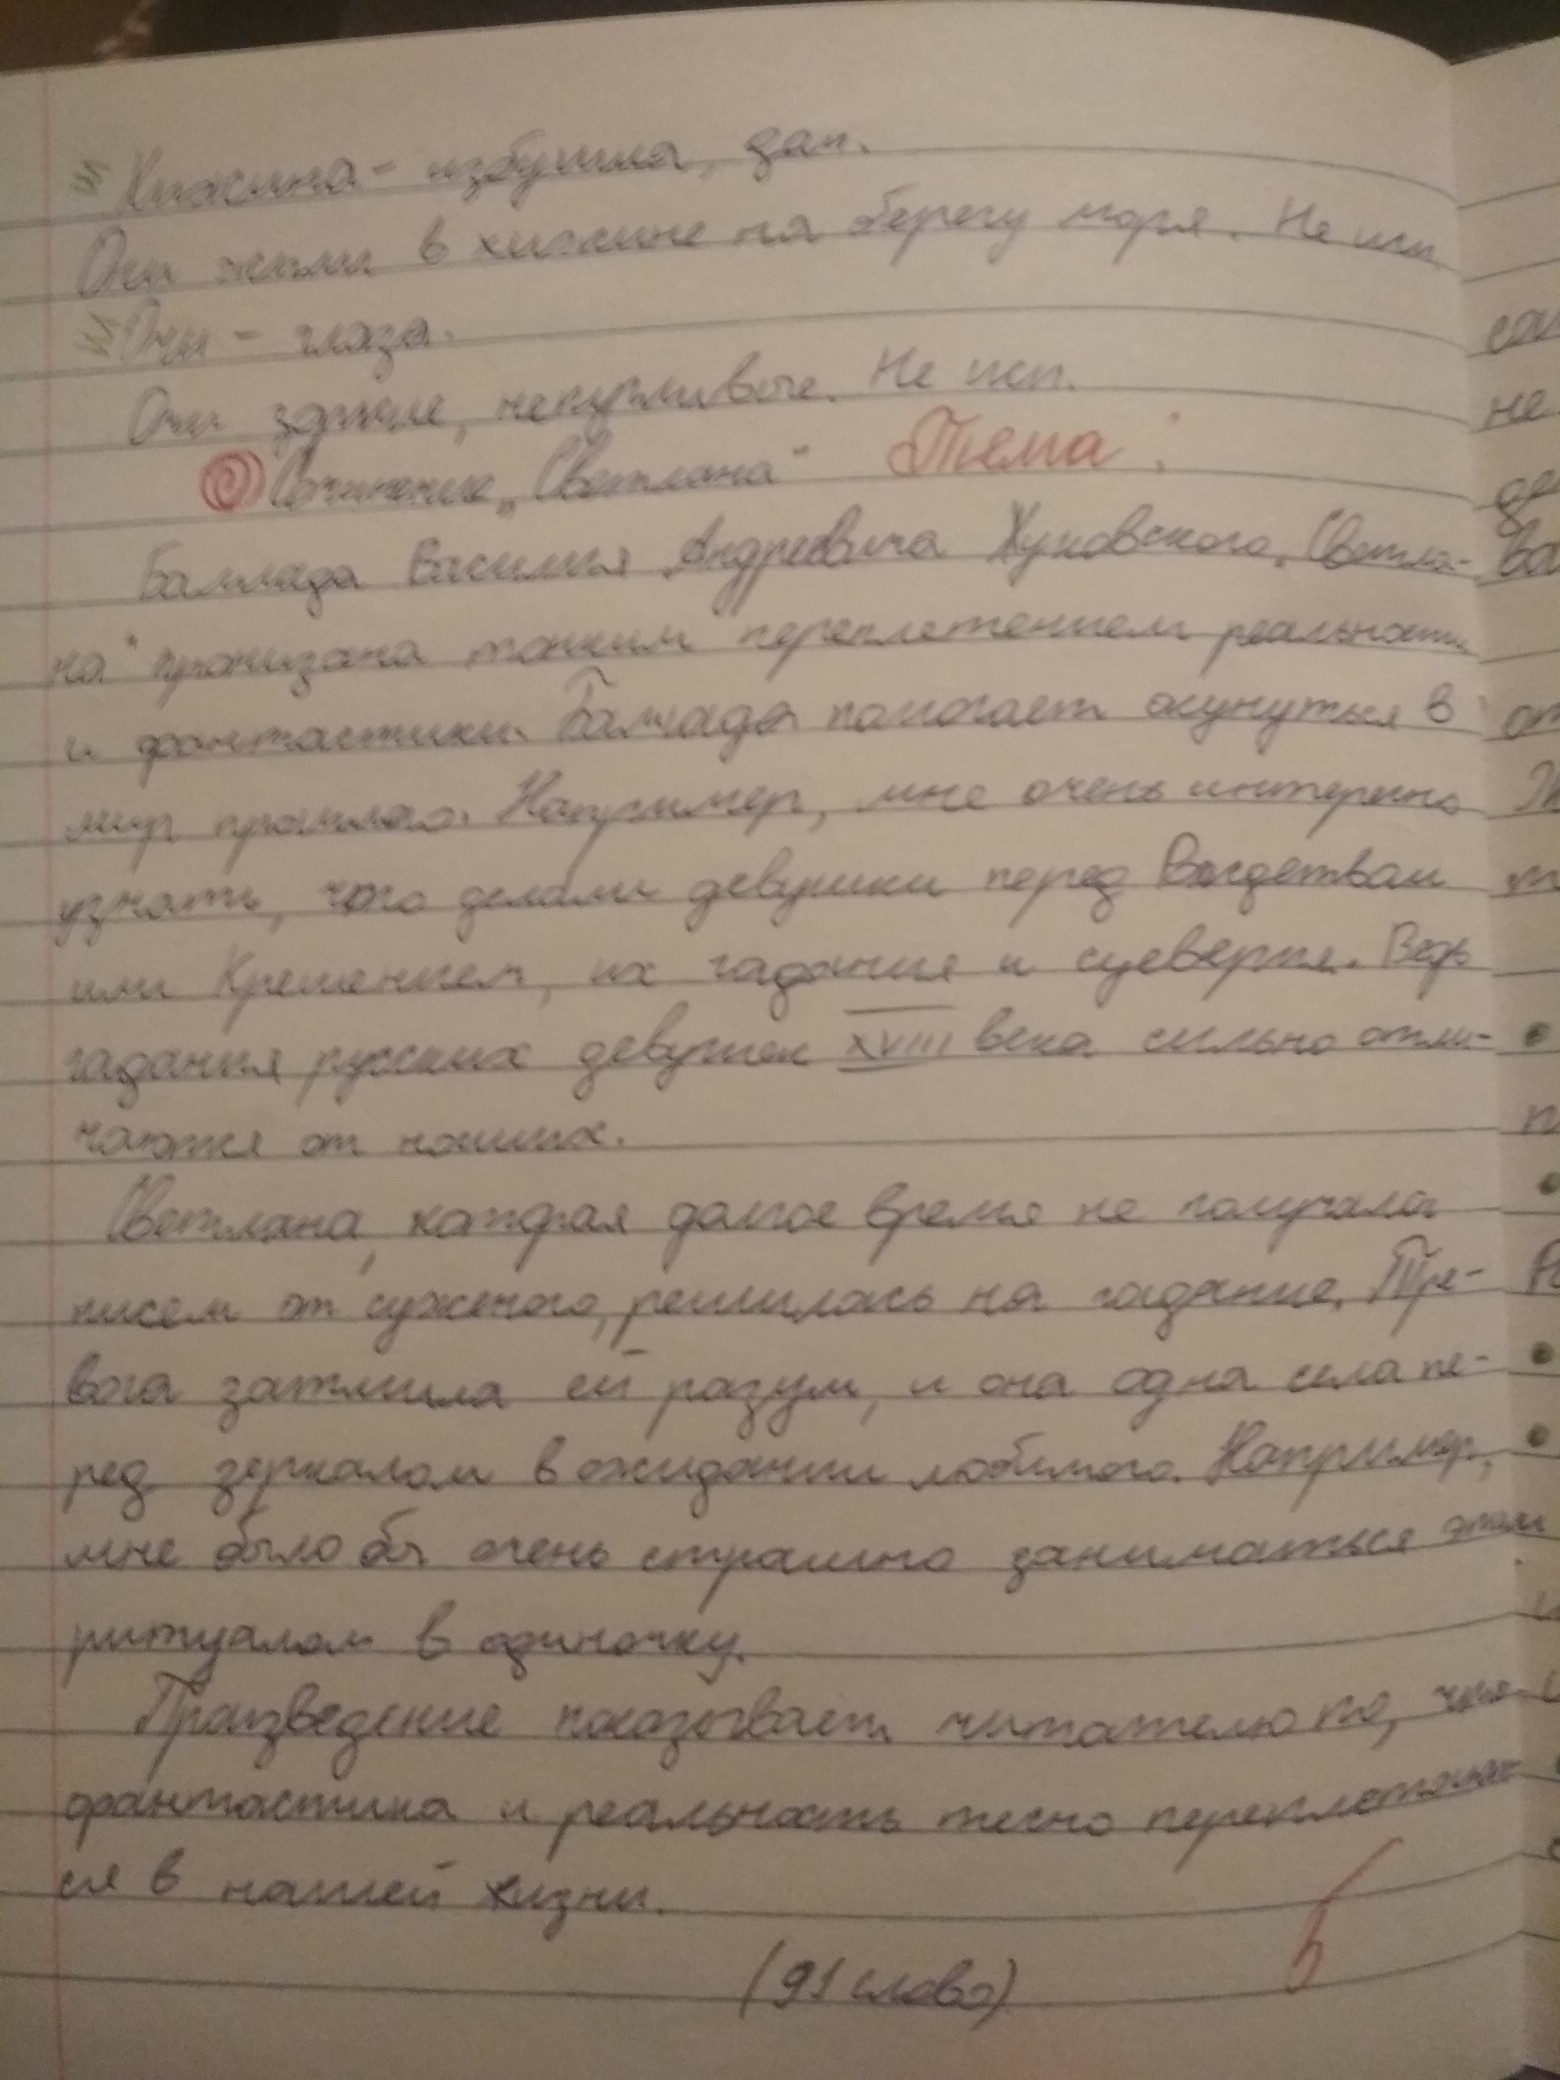 Хижина - избушка, дом.
Они жили в хижине на берегу моря. Не исп.
Очи - глаза.
Очи зоркие, непугливые. Не исп.
Сочинение „Светлана" Тема:
Баллада Василия Андреевича Жуковского „Светла-
на" пронизана тонким переплетением реальности
и фантастики. Баллада помогает окунуться в
мир прошлого. Например, мне очень интересно
узнать, что делали девушки перед
или Крещением, их гадания и суеверия. Ведь
гадания русских девушек XVIII века сильно отли-
чаются от наших.
Светлана, которая долгое время не получала
писем от суженого, решилась на гадание. Тре-
вога затмила ей разум, и она одна села пе-
ред зеркалом в ожидании любимого. Например,
мне было бы очень страшно заниматься этим
ритуалом в одиночку.
Произведение показывает читателю то, что
фантастика и реальность тесно переплетают-
ся в нашей жизни.
(91 слово)